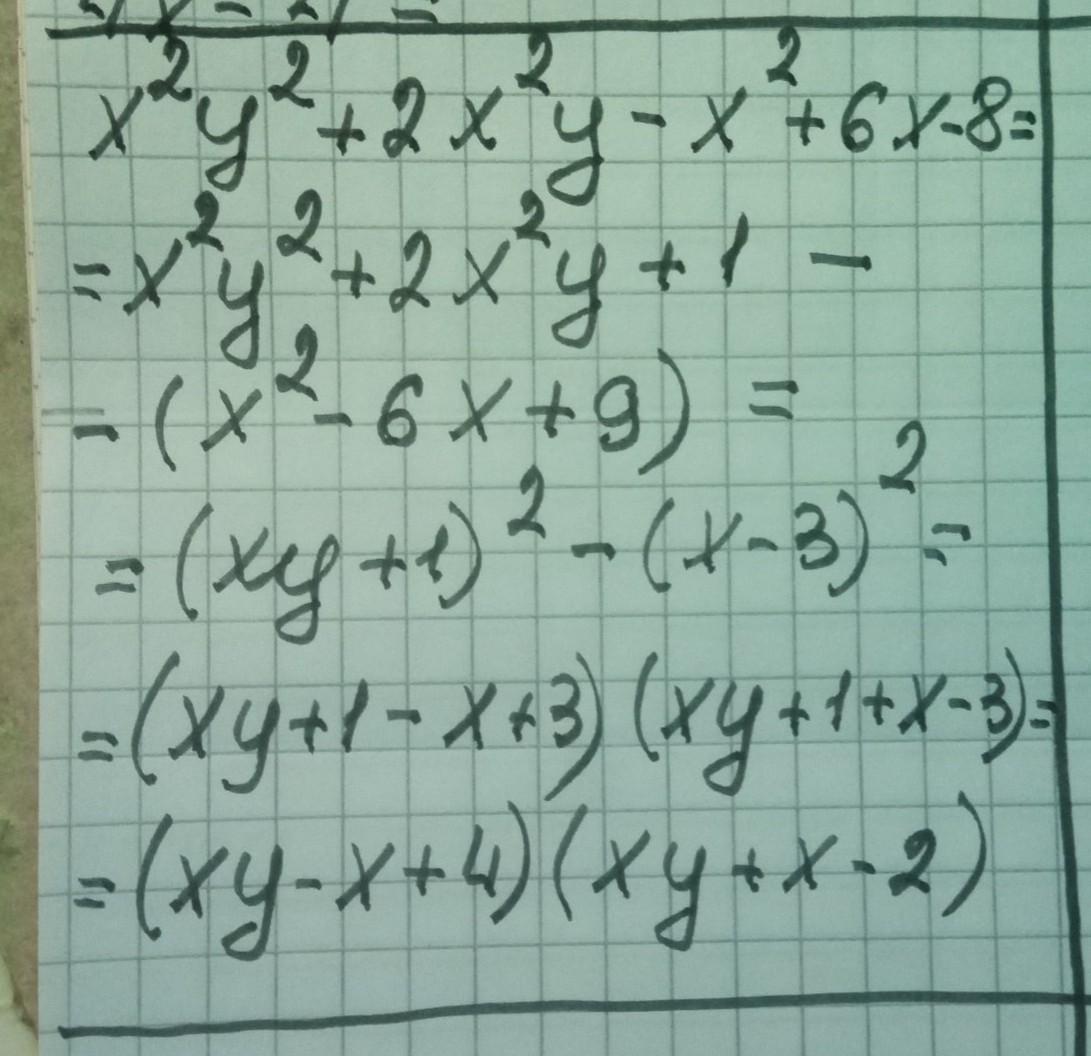 x²y² + 2x²y - x² + 6x - 8 =
= x²y² + 2x²y + 1 -
- (x² - 6x + 9) =
= (xy + 1)² - (x - 3)² =
= (xy + 1 - x + 3) (xy + 1 + x - 3) =
= (xy - x + 4) (xy + x - 2)